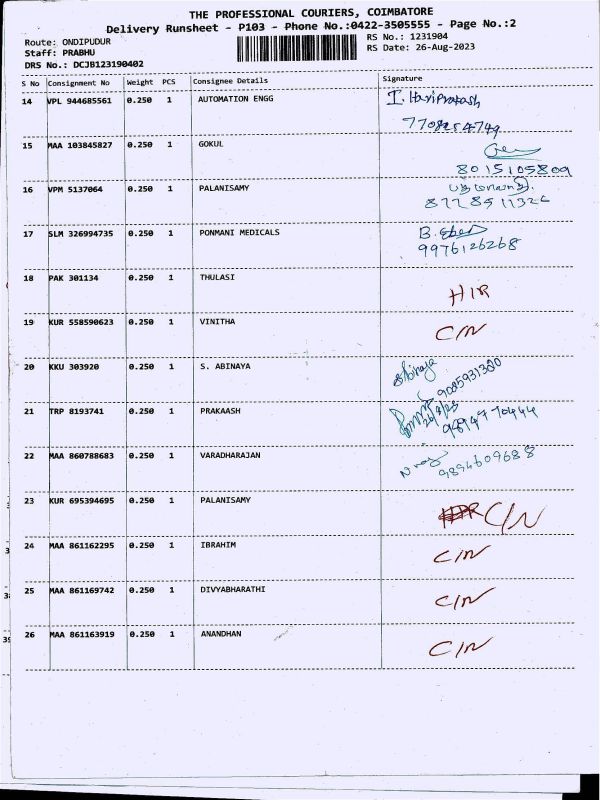 THE PROFESSIONAL COURIERS, COIMBATORE
Delivery Runsheet - P103 - Phone No.:0422-3505555 - Page No.:2
Route: ONDIPUDUR
RS No.: 1231904
Staff: PRABHU
RS Date: 26-Aug-2023
DRS No.: DCJB123190402
S No Consignment No Weight PCS Consignee Details Signature
14 VPL 944685561 0.250 1 AUTOMATION ENGG I. Hariprakash
15 MAA 103845827 0.250 1 GOKUL
8015105809
16 VPM 5137064 0.250 1 PALANISAMY
17 SLM 326994735 0.250 1 PONMANI MEDICALS B.
9976126268
18 PAK 301134 0.250 1 THULASI
HIR
19 KUR 558590623 0.250 1 VINITHA C/N
20 KKU 303920 0.250 1 S. ABINAYA Abinaya
9085931300
21 TRP 8193741 0.250 1 PRAKAASH 26/8/23
9894770444
22 MAA 860788683 0.250 1 VARADHARAJAN
9894609688
23 KUR 695394695 0.250 1 PALANISAMY C/N
24 MAA 861162295 0.250 1 IBRAHIM C/N
25 MAA 861169742 0.250 1 DIVYABHARATHI C/N
26 MAA 861163919 0.250 1 ANANDHAN C/N